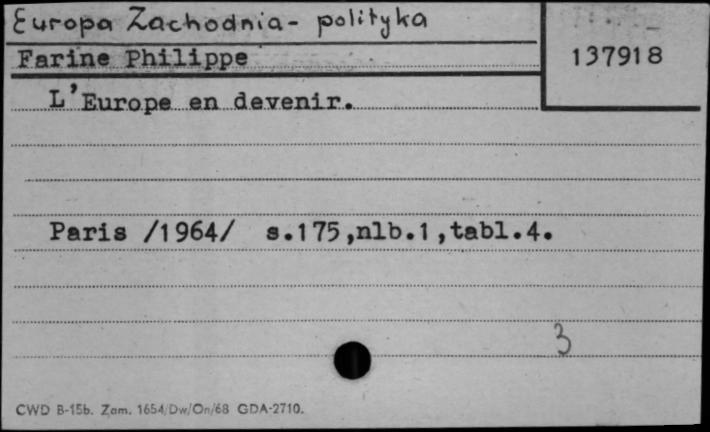 Europa Zachodnia - polityka
Farine Philippe
137918
L'Europe en devenir.
Paris /1964/ s.175,nlb.1,tabl.4.
3
CWD B-15b. Zam. 1654/Dw/On/68 GDA-2710.